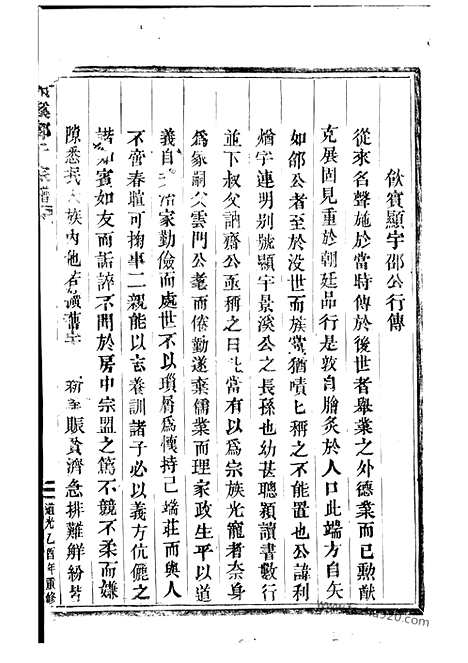 飲賓顯宇邵公行傳
從來名聲施於當時傳於後世者舉業之外德業而已勲猷
克展固見重於朝廷品行是敦自膾炙於人口此端方自矢
如邵公者至於没世而族黨猶嘖匕稱之不能置也公諱利
字連明别號顯宇景溪公之長孫也幼甚聰穎讀書數行
並下叔父訥齋公亟稱之日此當有以爲宗族光寵者奈身
爲冢嗣父雲門公耄而倦勤遂棄儒業而理家政生平以道
義自治家勤儉而處世不以瑣屑爲懷持己端莊而與人
不啻春暄可掬事二親能以志養訓諸子必以義方伉儷之
諧如賓如友而詬誶不聞於房中宗盟之篤不競不柔而嫌
隙悉泯族内他若讀書賑貧濟急排難觧紛皆
宗譜
道光乙酉年重修